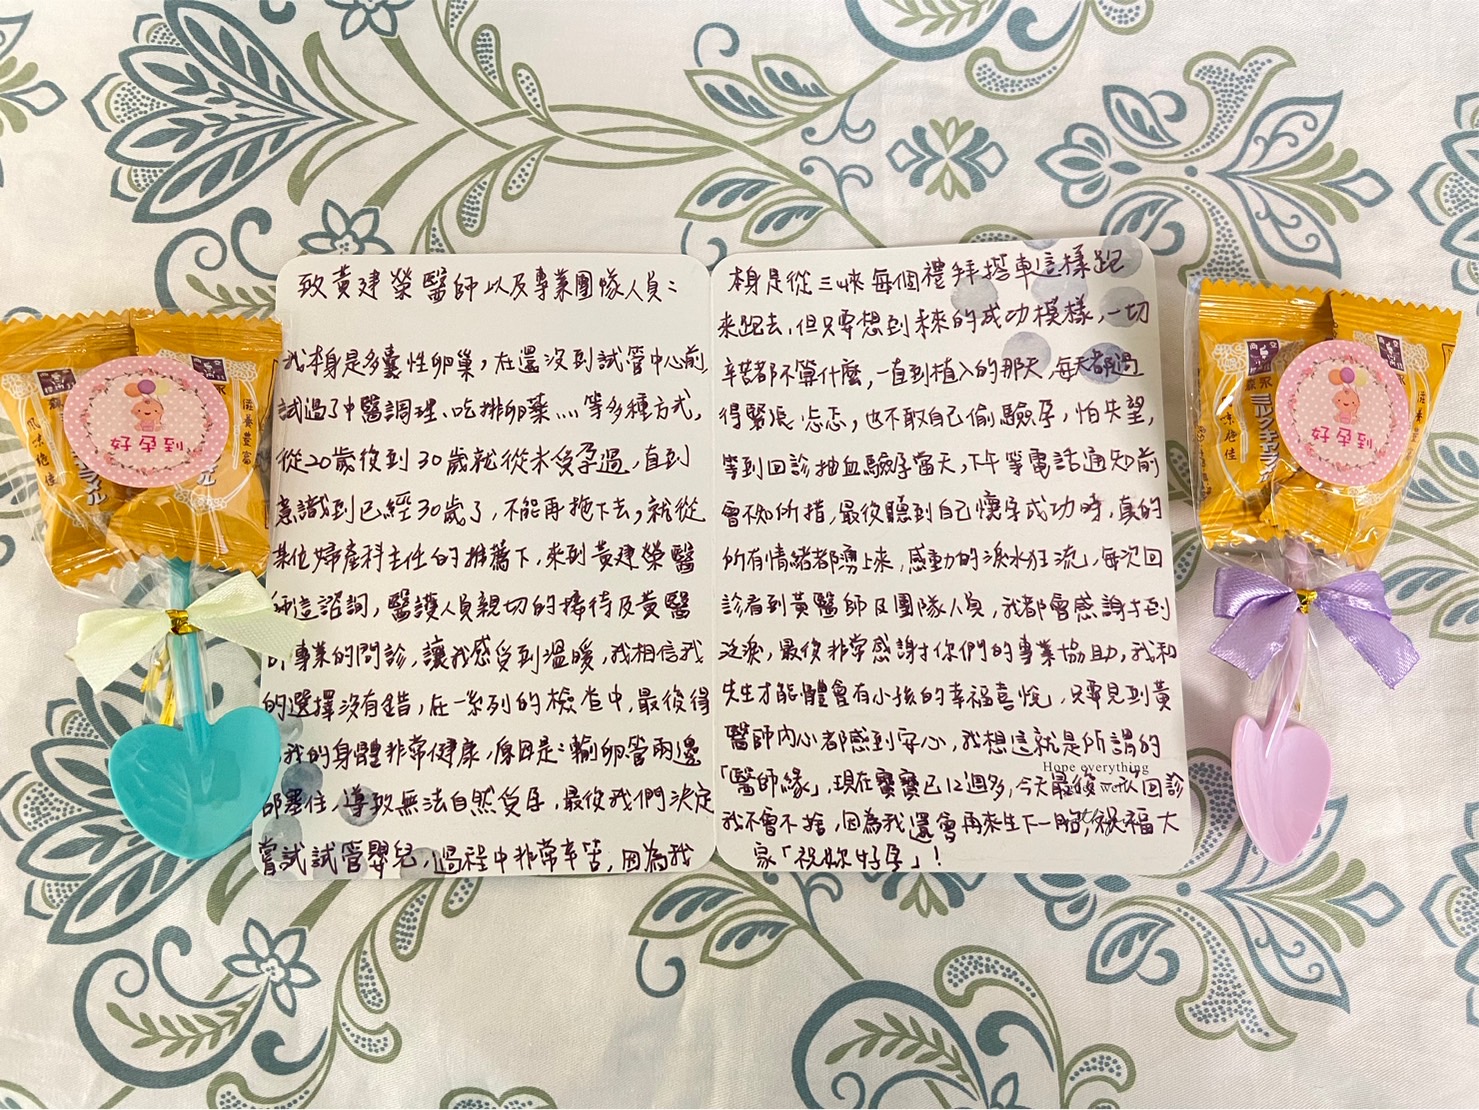 致黃建榮醫師以及專業團隊人員：
我本身是多囊性卵巢，在還沒到試管中心前，
試過了中醫調理、吃排卵藥...等多種方式，
從20歲後到30歲就從未受孕過，直到
意識到已經30歲了，不能再拖下去，就從
某位婦產科主任的推薦下，來到黃建榮醫
師這諮詢，醫護人員親切的接待及黃醫
師專業的問診，讓我感受到溫暖，我相信我
的選擇沒有錯，在一系列的檢查中，最後得
我的身體非常健康，原因是：輸卵管兩邊
都塞住，導致無法自然受孕，最後我們決定
嘗試試管嬰兒，過程中非常辛苦，因為我
本身是從三峽每個禮拜搭車這樣跑
來跑去，但只要想到未來的成功模樣，一切
辛苦都不算什麼，一直到植入的那天，每天都過
得緊張忐忑，也不敢自己偷驗孕，怕失望，
等到回診抽血驗孕當天，下午等電話通知前
會不知所措，最後聽到自己懷孕成功時，真的
所有情緒都湧上來，感動的淚水狂流，每次回
診看到黃醫師及團隊人員，我都會感謝到
泣淚，最後非常感謝你們的專業協助，我和
先生才能體會有小孩的幸福喜悅，只要見到黃
醫師內心都感到安心，我想這就是所謂的
Hope everything
「醫師緣」，現在寶寶已12週多，今天最後一次回診
我不會不捨，因為我還會再來生下一胎，祝福大
家「祝妳好孕」！
好孕到
森永
ミルクキャラメル
滋養豐富
風味絶佳
好孕到
森永
ミルクキャラメル
滋養豐富